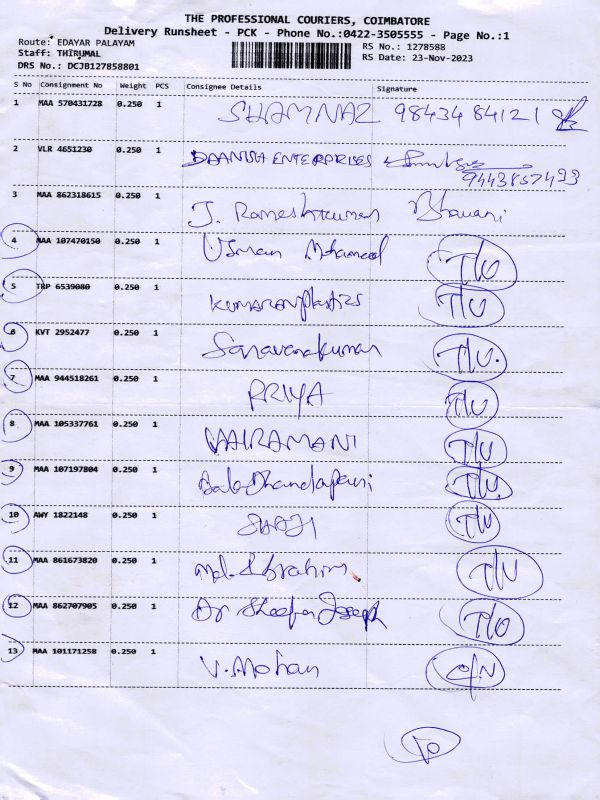 THE PROFESSIONAL COURIERS, COIMBATORE
Delivery Runsheet - PCK - Phone No.:0422-3505555 - Page No.:1
Route: EDAYAR PALAYAM
RS No.: 1278588
Staff: THIRUMAL
RS Date: 23-Nov-2023
DRS No.: DCJB127858801
S No Consignment No Weight PCS Consignee Details Signature
1 MAA 570431728 0.250 1 SHAMNAZ 98434 84121
2 VLR 4651230 0.250 1 DAANISH ENTERPRISES
9443857493
3 MAA 862318615 0.250 1 J. Rameshkumar Bhavani
4 MAA 107470150 0.250 1 Usman Mohamed
5 TRP 6539080 0.250 1 KUMARAN plastics
6 KVT 2952477 0.250 1 Saravanakumar
7 MAA 944518261 0.250 1 PRIYA
8 MAA 105337761 0.250 1 VAIRAMANI
9 MAA 107197804 0.250 1 Bala Dhandapani
10 AWY 1822148 0.250 1 SHAJI
11 MAA 861673820 0.250 1 Md. Ibrahim
12 MAA 862707905 0.250 1 Dr Sheefa Joseph
13 MAA 101171258 0.250 1 V. Mohan